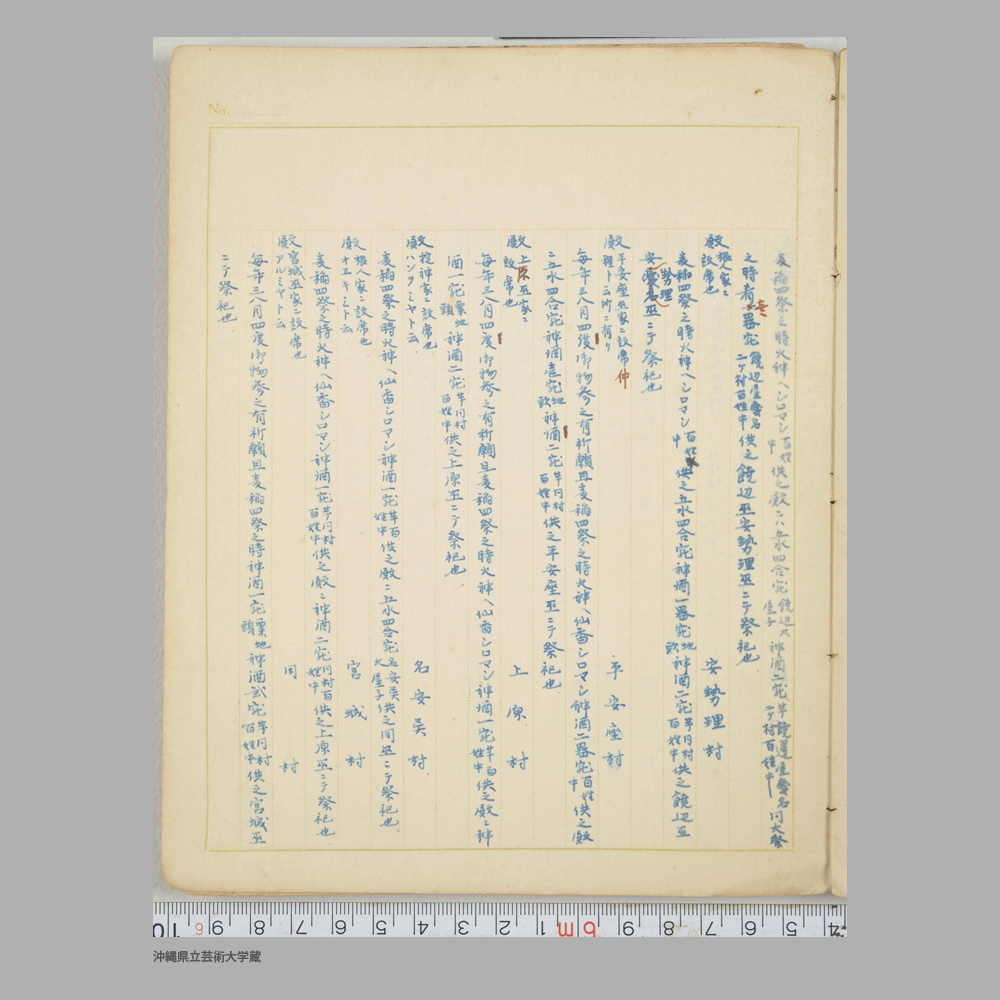 No.
麦稲四祭之時火神ヘシロマシ百姓中供之殿ニハ五水四合宛饒辺大屋子神酒二宛
同大祭
之時肴壱器宛饒辺屋慶名ニテ村百姓中供之饒辺巫安勢理巫ニテ祭祀也
殿 根人家ニ設席也 安勢理村
麦稲四祭之時火神ヘシロマシ百姓中供之五水四合宛神酒一器宛地頭神酒二宛竿同村百姓中供之饒辺巫
安勢理巫ニテ祭祀也
殿 平安座巫家ニ設席仲程ト云所ニ有リ 平安座村
毎年三八月四度御物参之有祈願且麦稲四祭之時火神ヘ仙香シロマシ神酒二器宛百姓中供之殿
ニ五水四合宛神酒壱宛地頭神酒二宛竿同村百姓中供之平安座巫ニテ祭祀也
殿 上原巫家ニ設席也 上原村
毎年三八月四度御物参之有祈願且麦稲四祭之時火神ヘ仙香シロマシ神酒一宛竿百姓中供之殿ニ神
酒一宛粟地頭神酒二宛竿同村百姓中供之上原巫ニテ祭祀也
殿 掟神家ニ設席也ハンタミヤト云 名安呉村
麦稲四祭之時火神ヘ仙香シロマシ神酒一宛竿百姓中供之殿ニ五水四合宛名安呉大屋子供之同巫ニテ祭祀也
殿 根人家ニ設席也 宮城村
麦稲四祭之時火神ヘ仙香シロマシ神酒一宛竿同村百姓中供之殿ニ神酒二宛同村百姓中供之上原巫ニテ祭祀也
殿 宮城巫家ニ設席也アルミヤト云 同村
毎年三八月四度御物参之有祈願且麦稲四祭之時神酒一宛粟地頭神酒弐宛竿同村百姓中供之宮城巫
ニテ祭祀也
沖縄県立芸術大学蔵